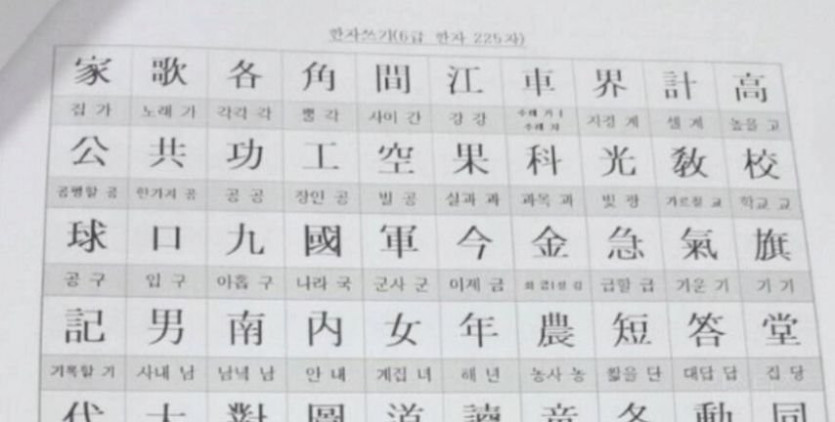 한자쓰기(6급 한자 225자)
家 歌 各 角 間 江 車 界 計 高
집 가 노래 가 각각 각 뿔 각 사이 간 강 강 수레 거 수레 차 지경 계 셀 계 높을 고
公 共 功 工 空 果 科 光 敎 校
공평할 공 한가지 공 공 공 장인 공 빌 공 실과 과 과목 과 빛 광 가르칠 교 학교 교
球 口 九 國 軍 今 金 急 氣 旗
공 구 입 구 아홉 구 나라 국 군사 군 이제 금 급할 급 기운 기 기 기
記 男 南 內 女 年 農 短 答 堂
기록할 기 사내 남 남녘 남 안 내 계집 녀 해 년 농사 농 짧을 단 대답 답 집 당
代 大 對 圖 道 讀 童 冬 動 同